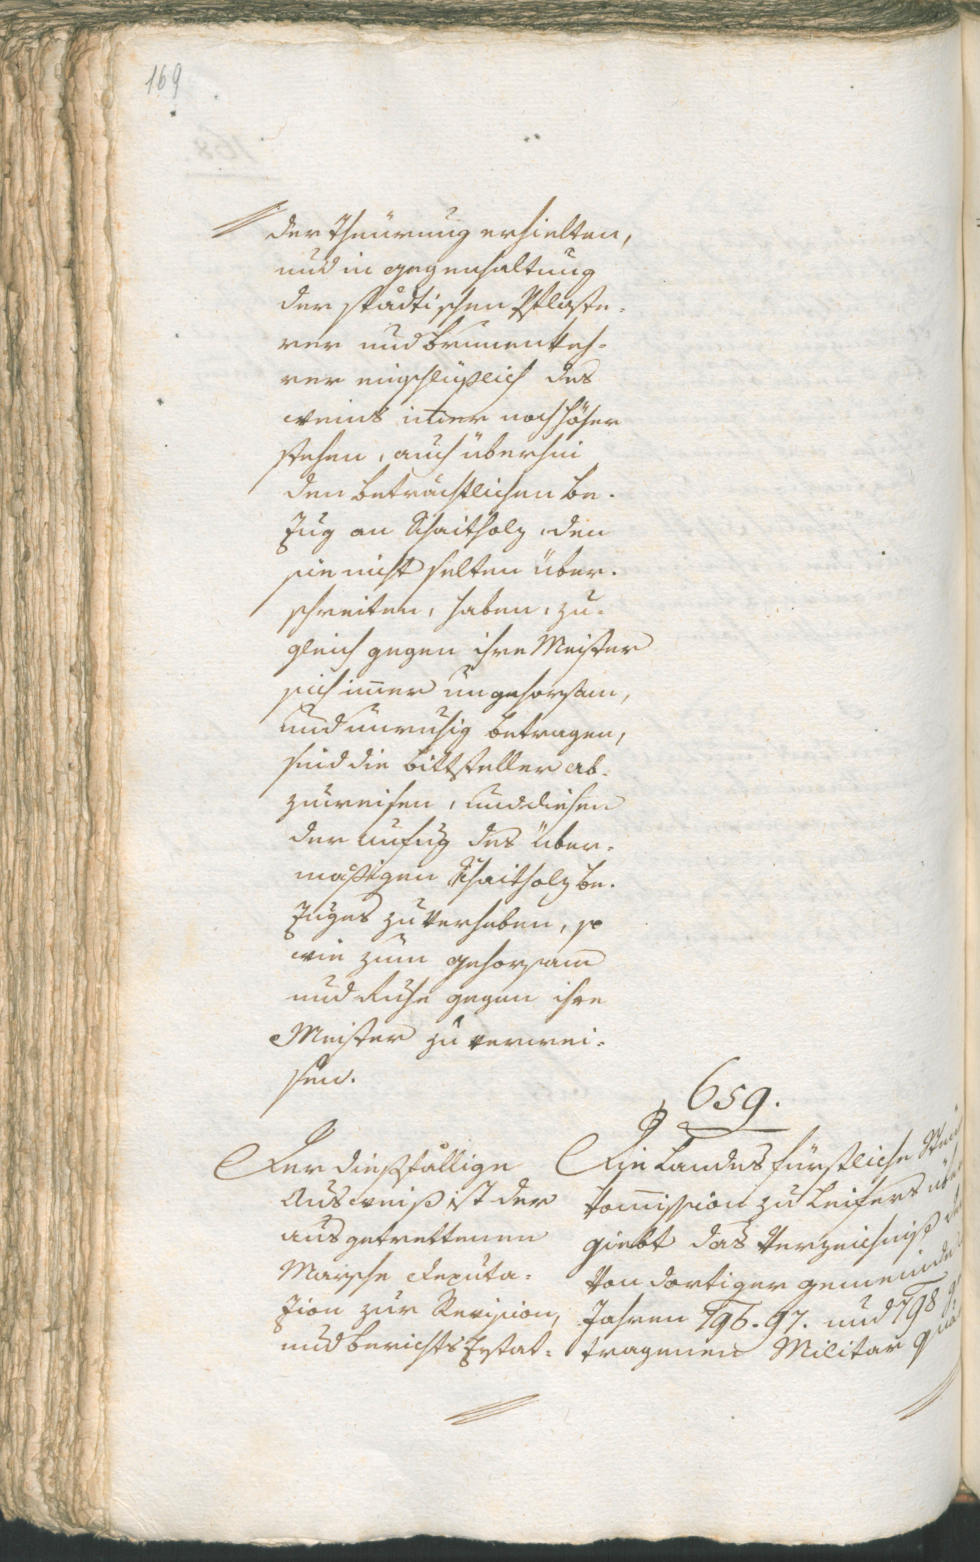 169
der Theürung erhielten,
und in gegenhaltung
der städtischen Pflaste-
rer und Brunnenkeh-
rer einschlüßlich des
weins im̄er noch höher
stehen, auch überhin
den beträchtlichen be-
zug an Schaitholz, den
sie nicht selten über-
schreiten, haben, zu-
gleich gegen ihre Meister
sich im̄er ungehorsam,
und unruhig betragen,
sind die Bittsteller ab-
zuweisen, und diesen
der Unfug des über-
mäßigen Schaitholz be-
zuges zu verheben, so
wie zum gehorsam
und Ruhe gegen ihre
Meister zu verwei-
sen.
659.
Der dießfällige
Ausweiß ist der
ausgetrettenen
Marsche Deputa-
zion zur Revision,
und berichts Erstat-
Die Landesfürstliche
Kom̄ission zu Leifers
giebt das Verzeichniß
von dortiger gemeinde
Jahren 796. 97. und 798
tragenen Militar